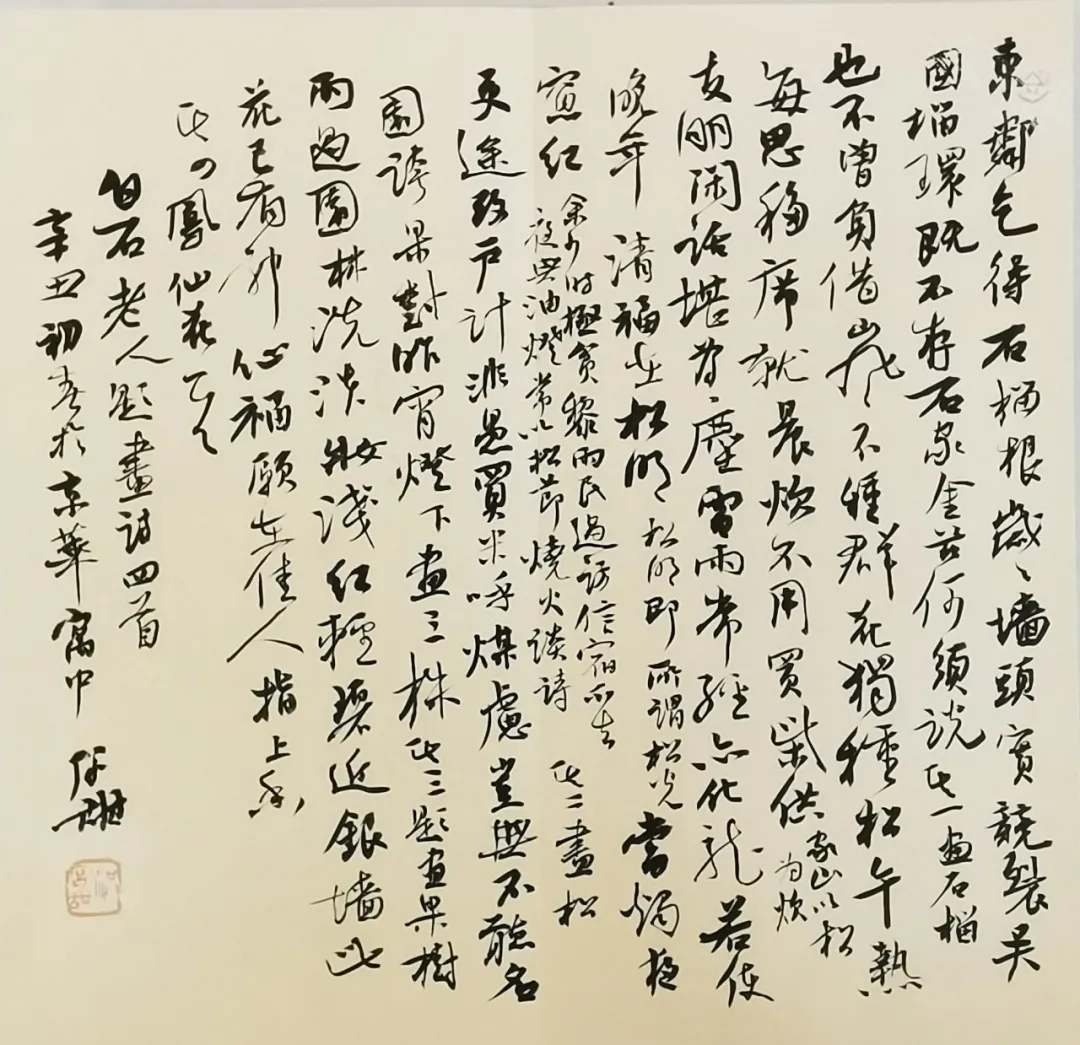 東鄰乞得石榴根歲〻墻頭實競裂吳
國榴環既不存石家金谷何須說 其一畫石榴
也不曾負借歲〻不種群花獨種松午熱
每思移席就晨炊不用買柴供 家山以松
為炊
友朋閑話堪為〻塵雷雨常經亦化龍若使
晚年清福在松明〻 松明即所謂松光 當燭夜
窗紅 余少時極貧黎雨民過訪信宿不去
夜無油燈常以松節燒火談詩 其二畫松
更途改戶計非愚買米呼煤慮豈無不能名
園誇果對昨宵燈下畫三株 其三題畫果樹
雨過園林洗淡妝淺紅輕碧近銀墻此
花已有神仙福願在佳人指上香
其四鳳仙花
白石老人題畫詩四首
辛丑初春於京華寓中